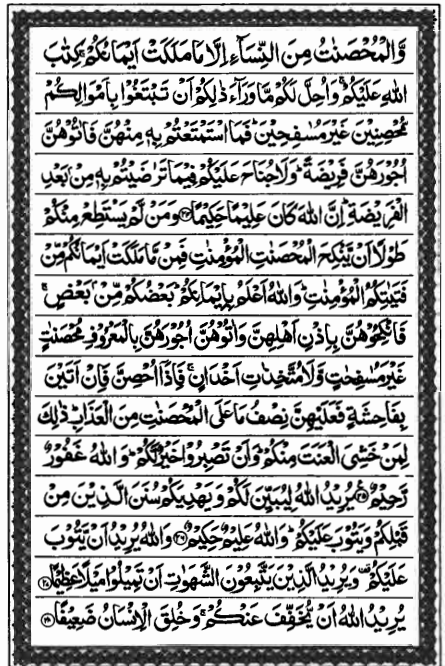 وَّالْمُحْصَنٰتُ مِنَ النِّسَآءِ اِلَّا مَا مَلَكَتْ اَیْمَانُكُمْ ۚ كِتٰبَ
اللّٰهِ عَلَیْكُمْ ۚ وَاُحِلَّ لَكُمْ مَّا وَرَآءَ ذٰلِكُمْ اَنْ تَبْتَغُوْا بِاَمْوَالِكُمْ
مُّحْصِنِیْنَ غَیْرَ مُسٰفِحِیْنَ ؕ فَمَا اسْتَمْتَعْتُمْ بِهٖ مِنْهُنَّ فَاٰتُوْهُنَّ
اُجُوْرَهُنَّ فَرِیْضَةً ؕ وَلَا جُنَاحَ عَلَیْكُمْ فِیْمَا تَرٰضَیْتُمْ بِهٖ مِنْۢ بَعْدِ
الْفَرِیْضَةِ ؕ اِنَّ اللّٰهَ كَانَ عَلِیْمًا حَكِیْمًا ﴿۲۴﴾ وَمَنْ لَّمْ یَسْتَطِعْ مِنْكُمْ
طَوْلًا اَنْ یَّنْكِحَ الْمُحْصَنٰتِ الْمُؤْمِنٰتِ فَمِنْ مَّا مَلَكَتْ اَیْمَانُكُمْ مِّنْ
فَتَیٰتِكُمُ الْمُؤْمِنٰتِ ؕ وَاللّٰهُ اَعْلَمُ بِاِیْمَانِكُمْ ؕ بَعْضُكُمْ مِّنْۢ بَعْضٍ ۚ
فَانْكِحُوْهُنَّ بِاِذْنِ اَهْلِهِنَّ وَاٰتُوْهُنَّ اُجُوْرَهُنَّ بِالْمَعْرُوْفِ مُحْصَنٰتٍ
غَیْرَ مُسٰفِحٰتٍ وَّلَا مُتَّخِذٰتِ اَخْدَانٍ ۚ فَاِذَاۤ اُحْصِنَّ فَاِنْ اَتَیْنَ
بِفَاحِشَةٍ فَعَلَیْهِنَّ نِصْفُ مَا عَلَى الْمُحْصَنٰتِ مِنَ الْعَذَابِ ؕ ذٰلِكَ
لِمَنْ خَشِیَ الْعَنَتَ مِنْكُمْ ؕ وَاَنْ تَصْبِرُوْا خَیْرٌ لَّكُمْ ؕ وَاللّٰهُ غَفُوْرٌ
رَّحِیْمٌ ﴿۲۵﴾ یُرِیْدُ اللّٰهُ لِیُبَیِّنَ لَكُمْ وَیَهْدِیَكُمْ سُنَنَ الَّذِیْنَ مِنْ
قَبْلِكُمْ وَیَتُوْبَ عَلَیْكُمْ ؕ وَاللّٰهُ عَلِیْمٌ حَكِیْمٌ ﴿۲۶﴾ وَاللّٰهُ یُرِیْدُ اَنْ یَّتُوْبَ
عَلَیْكُمْ ۫ وَیُرِیْدُ الَّذِیْنَ یَتَّبِعُوْنَ الشَّهَوٰتِ اَنْ تَمِیْلُوْا مَیْلًا عَظِیْمًا ﴿۲۷﴾
یُرِیْدُ اللّٰهُ اَنْ یُّخَفِّفَ عَنْكُمْ ۚ وَخُلِقَ الْاِنْسَانُ ضَعِیْفًا ﴿۲۸﴾